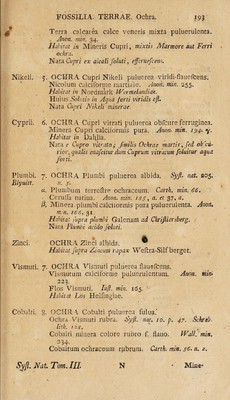 FOSSILIA. TERRAE. Ochra. 193
Terra calcarea calce veneris mixta puluerulenta.
Anon. min. 34.
Habitat in Mineris Cupri, mixtis Marmore aut Ferri
ochra.
Nata Cupri ex alcali soluti, efferuescens.
Nikeli. 5. OCHRA Cupri Nikeli puluerea viridi-flauescens.
Nicolum calciforme martiale. Anon. min. 255.
Habitat in Nordmark Wermelandiae.
Huius Solutio in Aqua forti viridis est.
Nata Cupri Nikeli minerae.
Cypril. 6. OCHRA Cupri vitrati puluerea obscure ferruginea.
Minera Cupri calciformis pura. Anon. min. 194. γ.
Habitat in Dahlia.
Nata e Cupro vitrato, similis Ochrae martis, sed obscu-
rior, qualis enascitur dum Cuprum vitreum soluitur aqua
forti.
Plumbi. 7. OCHRA Plumbi puluerea albida. Syst. nat. 205.
Blywitt. n. 7.
α. Plumbum terrestre ochraceum. Carth. min. 66.
Cerussa nativa. Anon. min. 185, a. et 37, a.
β. Minera plumbi calciformis pura puluerulenta. Anon.
min. 166, 31
Habitat supra plumbi Galenam ad Christiersberg.
Nata Plumbi acido soluti.
Zinci. OCHRA Zinci albida.
Habitat supra Zincum rapax Westra-Silfberget.
Vismuti. 7. OCHRA Vismuti puluerea flauescens.
Vismutum calciforme puluerulentum. Anon. min.
223.
Flos Vismuti. Just. min. 165.
Habitat Los Helsingiae.
Cobalti. 3. OCHRA Cobalti puluerea fulua.
Ochra Vismuti rubra. Syst. nat. 10. p. 47. Schreb.
lith. 111.
Cobalti minera colore rubro s. flauo. Wall. min.
234.
Cobaltum ochraceum rubrum. Carth. min. 56. n. 2.
Syst. Nat. Tom. III. N Mine-